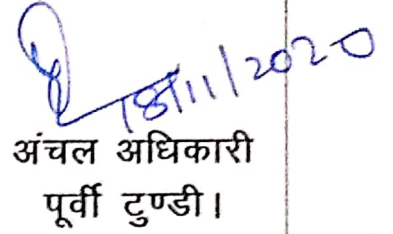 18/11/2020
अंचल अधिकारी
पूर्वी टुण्डी।